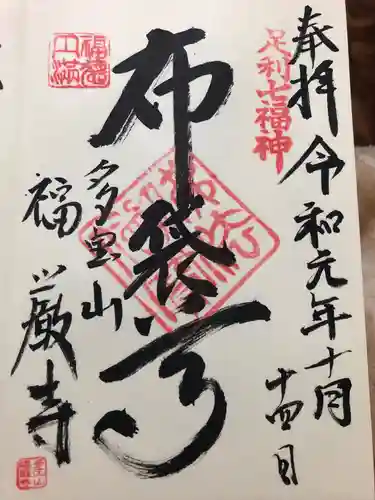 奉拝
令和元年十月
十四日
足利七福神
布袋尊
多宝山
福厳寺
福徳
円満